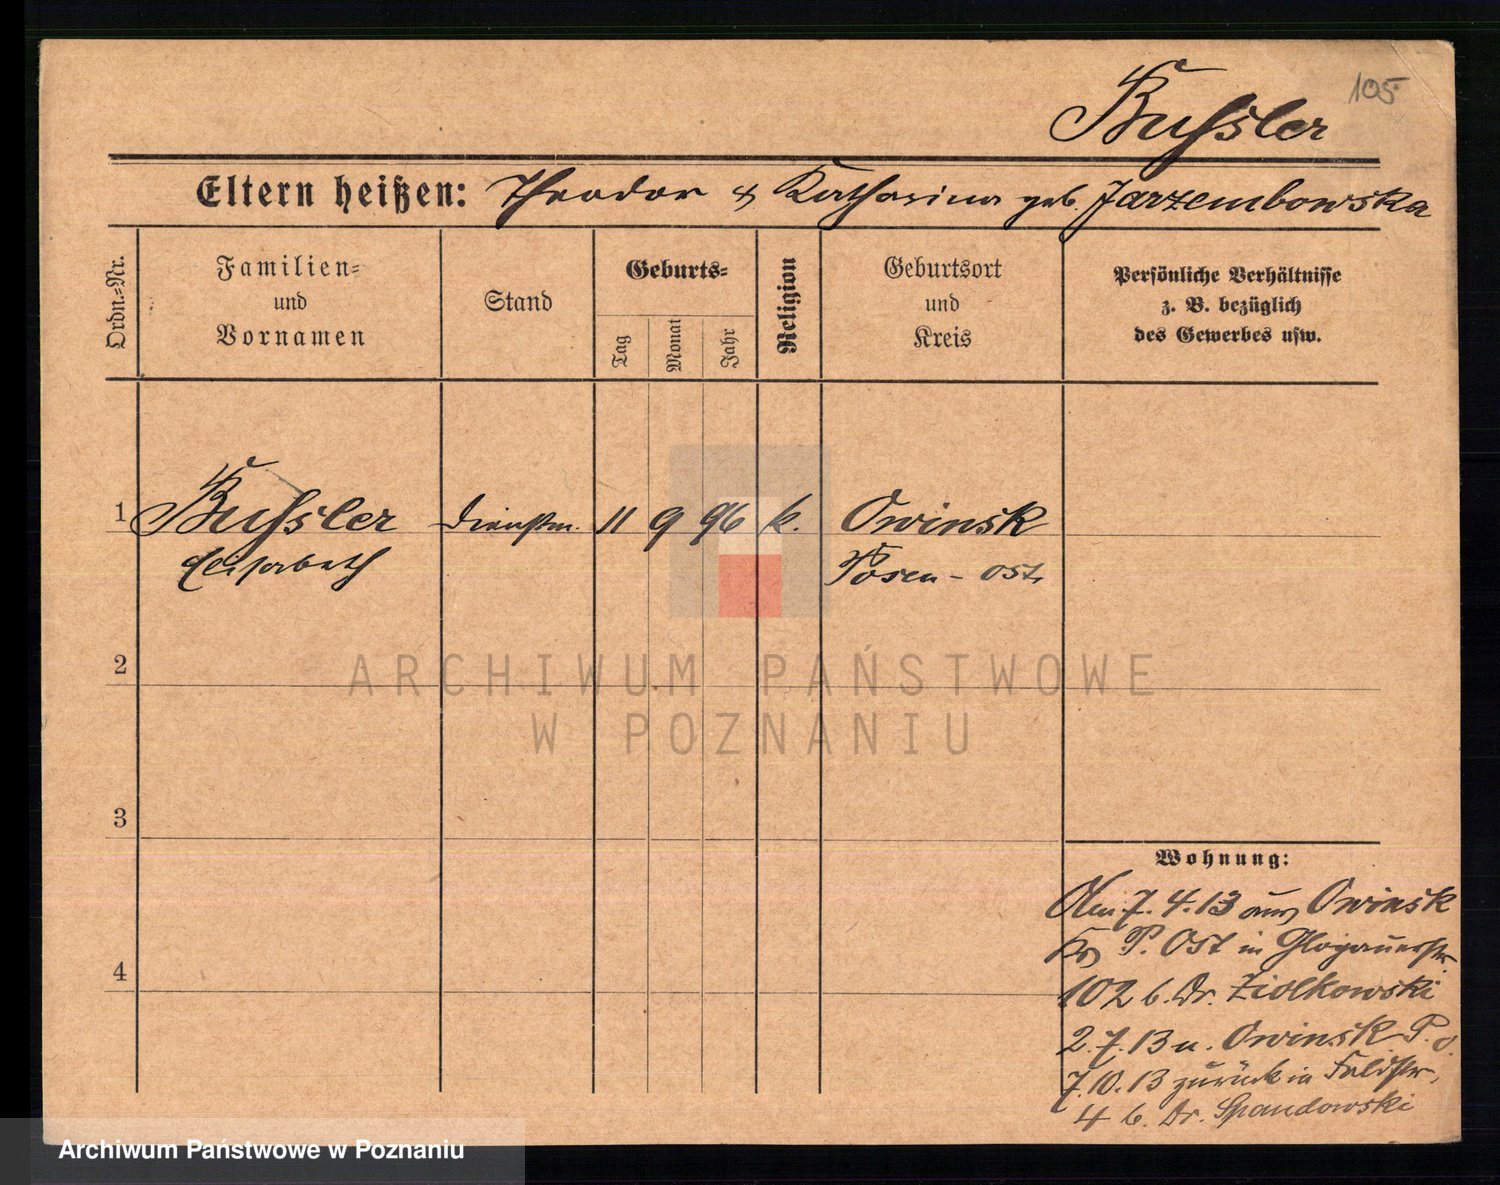 105
Bußler
Eltern heißen: Theodor & Katharina geb. Jarzembowska
Ordn.=Nr.
Familien=
und
Vornamen
Stand
Geburts=
Tag
Monat
Jahr
Religion
Geburtsort
und
Kreis
Persönliche Verhältnisse
z. B. bezüglich
des Gewerbes usw.
1 Bußler Dienstm. 11 9 96 k. Owinsk
Elisabeth Posen - Ost.
2
3
4
Wohnung:
7.4.13 aus Owinsk
Kr P. Ost in Glogauerstr.
102 b. Dr. Ziolkowski
2.7.13 n. Owinsk P. O.
7.10.13 zurück in Feldstr.
4 b. Dr. Spandowski
ARCHIWUM PAŃSTWOWE
W POZNANIU
Archiwum Państwowe w Poznaniu